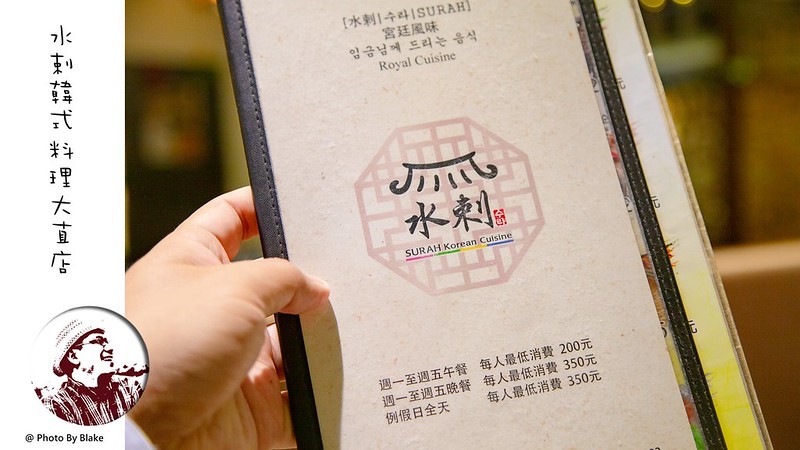 水剌韓式料理大直店
@ Photo By Blake
[水剌|수라|SURAH]
宮廷風味
임금님께 드리는 음식
Royal Cuisine
水剌
수라
SURAH Korean Cuisine
週一至週五午餐 每人最低消費 200元
週一至週五晚餐 每人最低消費 350元
例假日全天 每人最低消費 350元
元
元